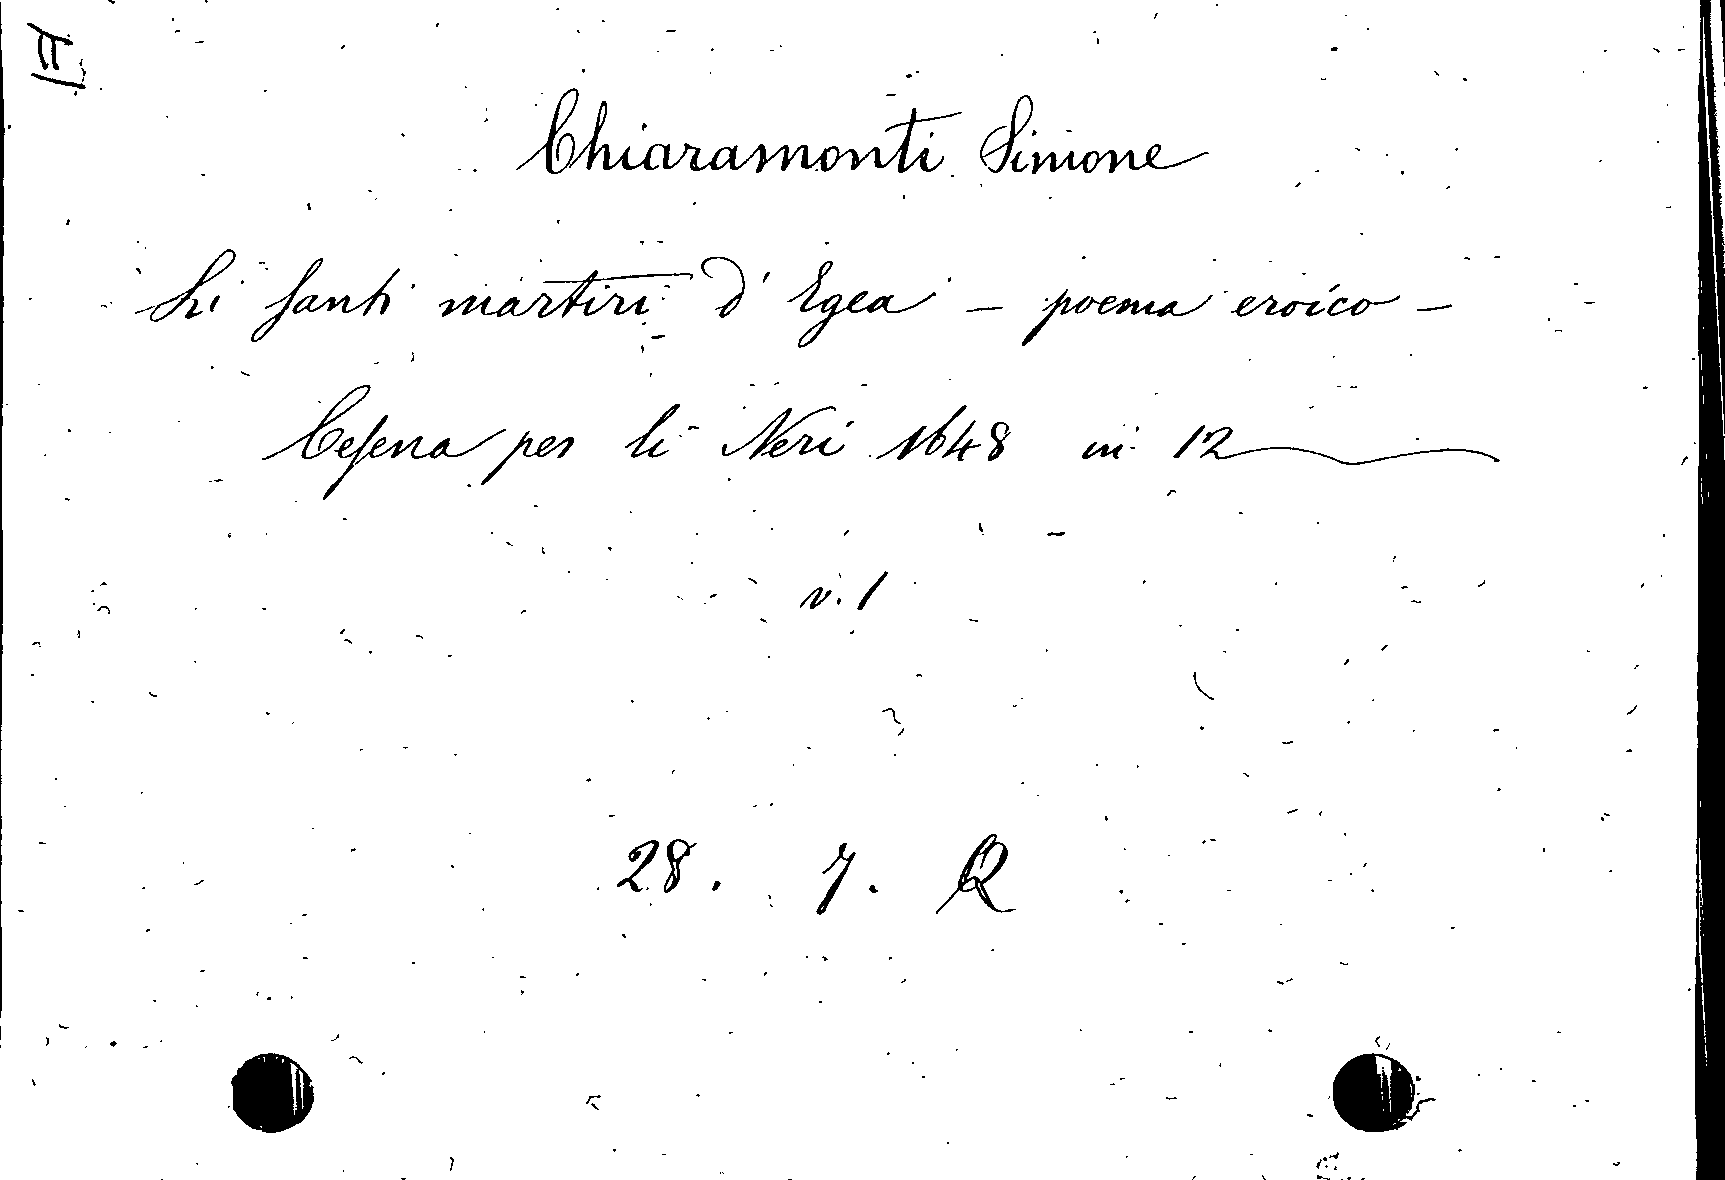 Chiaramonti Simione
Li santi martiri d' Egea - poema eroico -
Cesena per li Neri 1648 in 12
v. 1
28. 7. Q